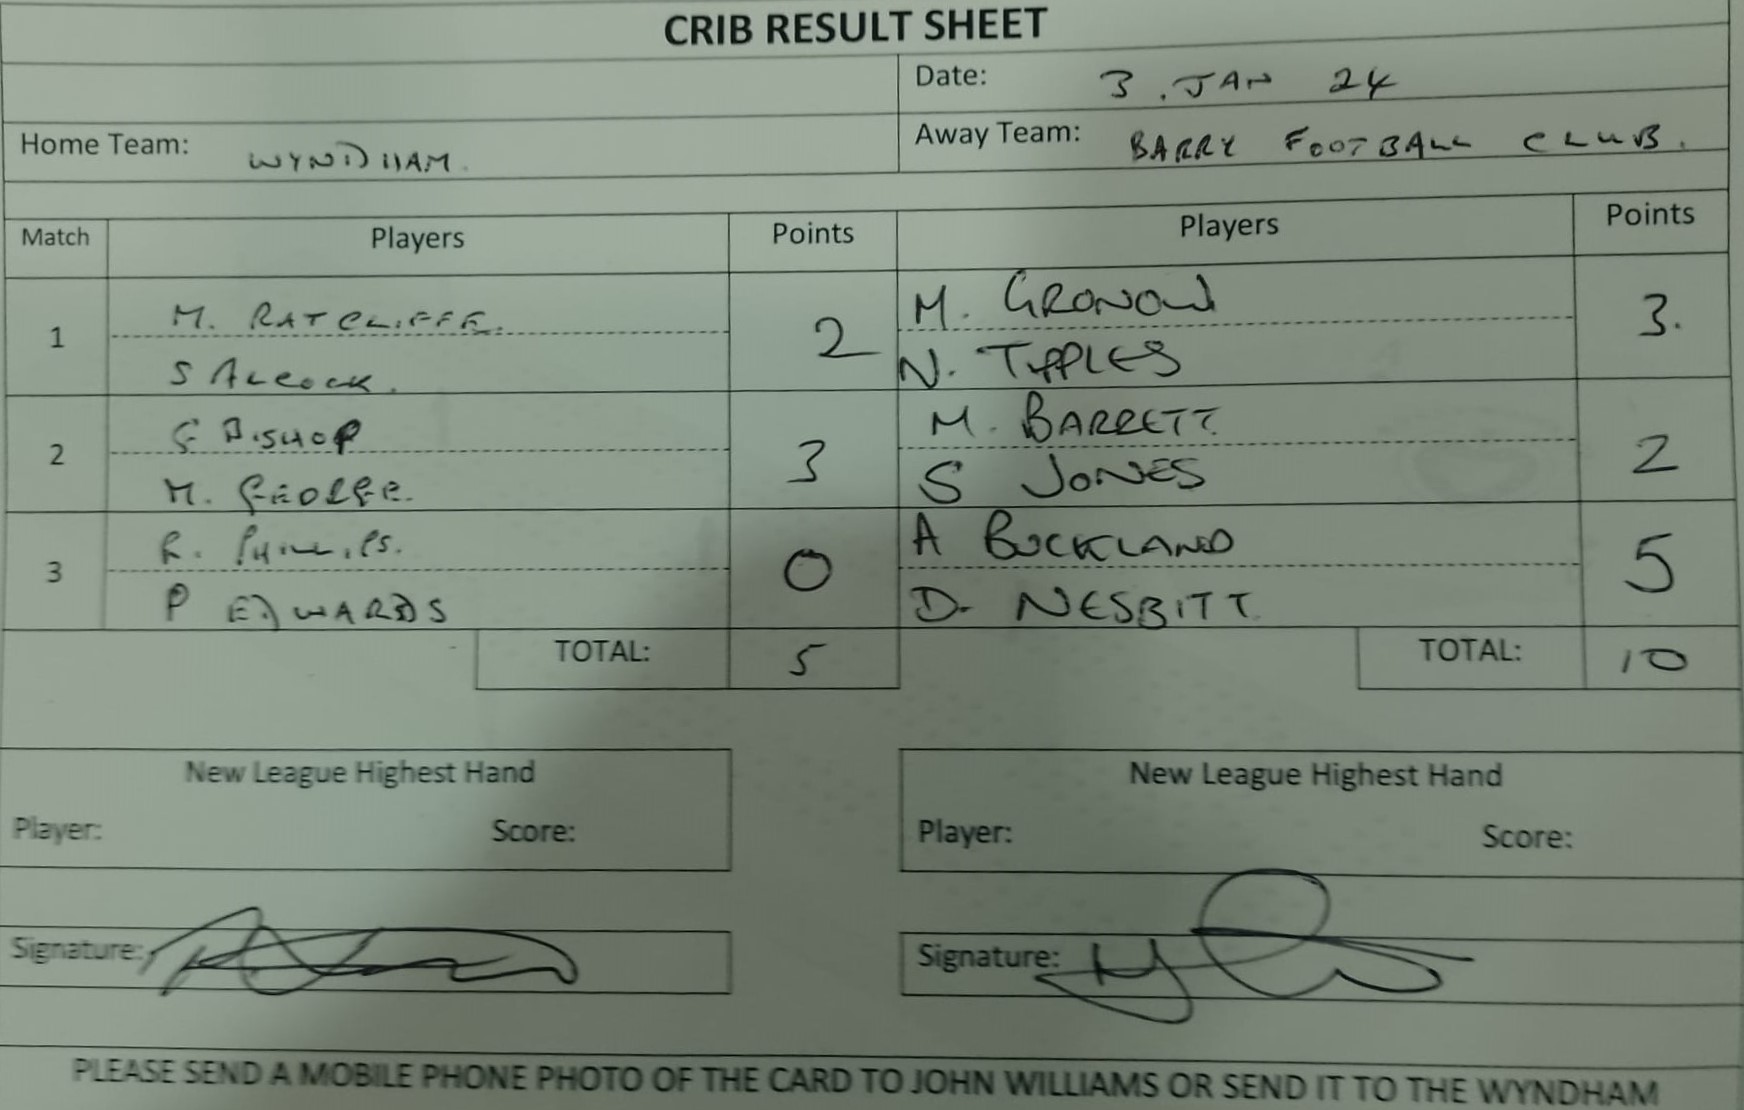 CRIB RESULT SHEET
Date: 3. JAN 24
Home Team: WYNDHAM. Away Team: BARRY FOOTBALL CLUB.
Match Players Points Players Points
1 M. RATCLIFFE. 2 M. GRONOW 3.
S ALCOCK. N. TIPPLES
2 G BISHOP 3 M. BARRETT 2
M. GEORGE. S JONES
3 R. PHILLIPS. 0 A BUCKLAND 5
P EDWARDS D. NESBITT
TOTAL: 5 TOTAL: 10
New League Highest Hand New League Highest Hand
Player: Score: Player: Score:
Signature: Signature:
PLEASE SEND A MOBILE PHONE PHOTO OF THE CARD TO JOHN WILLIAMS OR SEND IT TO THE WYNDHAM